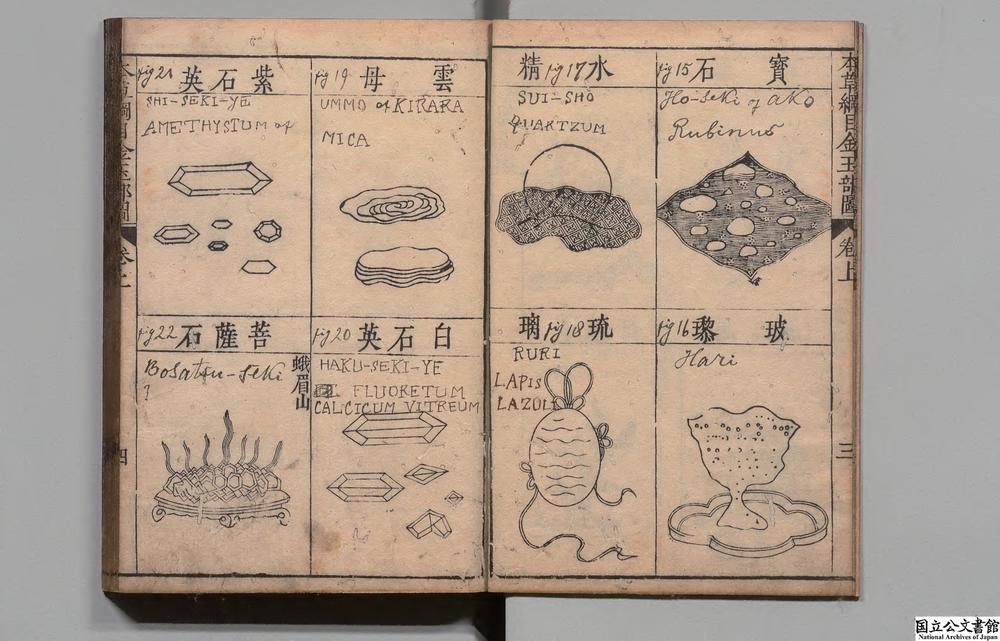 本草綱目金玉部圖
卷上
三
寶石
fig 15
Ho-seki of AKO
Rubinus
玻瓈
fig 16
Hari
水精
fig 17
SUI-SHO
QUARTZUM
琉璃
fig 18
RURI
LAPIS
LAZULI
雲母
fig 19
UMMO of KIRARA
MICA
白石英
fig 20
HAKU-SEKI-YE
FLUORETUM
CALCICUM VITREUM
紫石英
fig 21
SHI-SEKI-YE
AMETHYSTUM of
菩薩石
fig 22
峨眉山
Bosatsu-seki
?
四
国立公文書館
National Archives of Japan